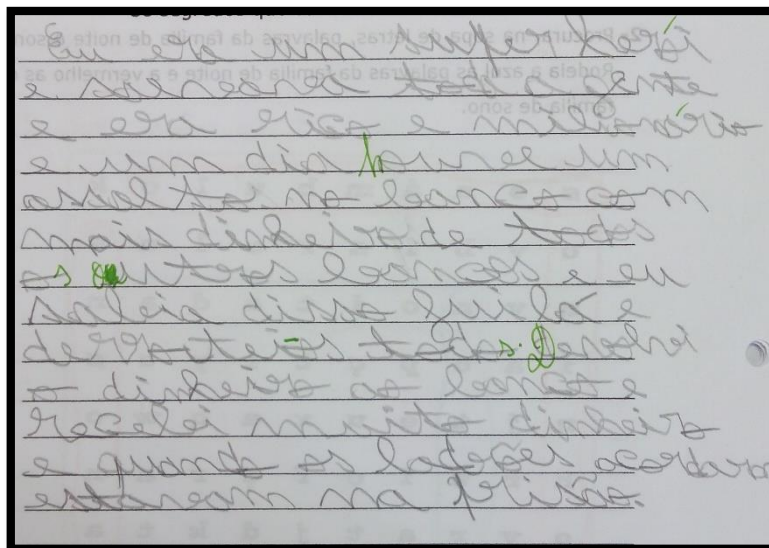 Eu era um super herói
e salvava toda a gente
e era rico e milionário
e um dia houve um
assalto no banco com
mais dinheiro de todos
os outros bancos e eu
sabia disso fui lá e
derrotei-os todos. Devolvi
o dinheiro ao banco e
recebi muito dinheiro
e quando os ladrões acordaram
estavam na prisão.